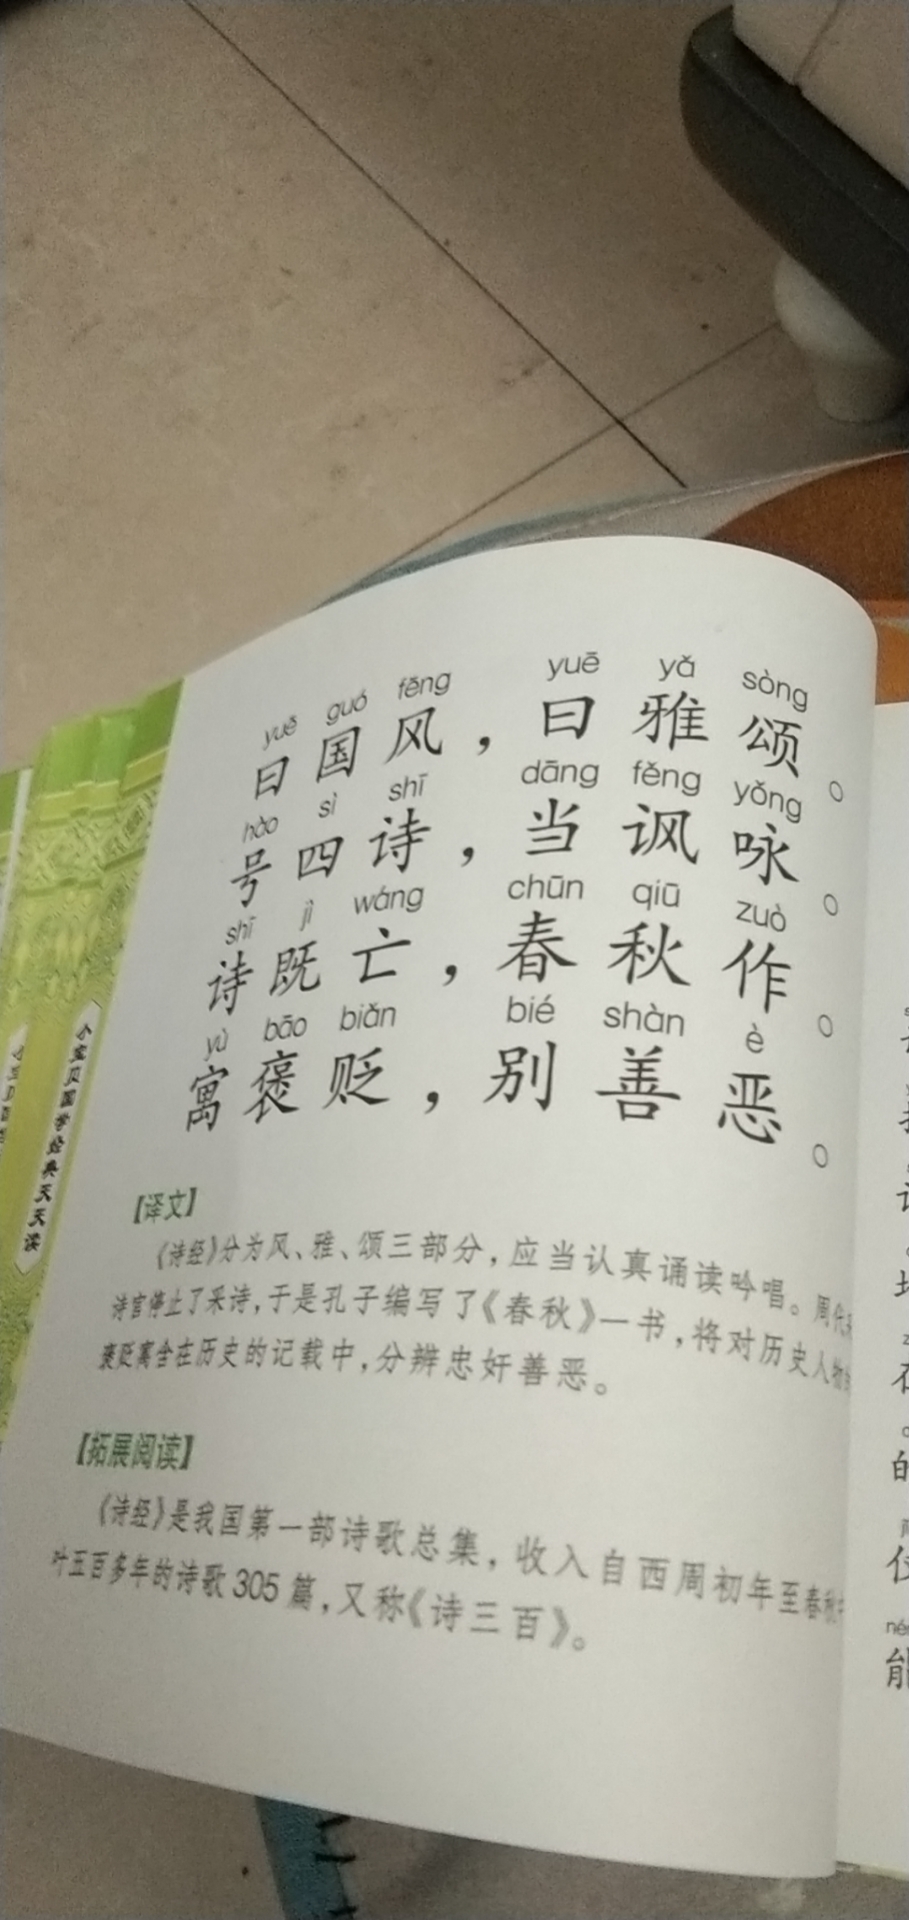 yuē guó fēng yuē yǎ sòng
曰国风，曰雅颂。
hào sì shī dāng fěng yǒng
号四诗，当讽咏。
shī jì wáng chūn qiū zuò
诗既亡，春秋作。
yù bāo biǎn bié shàn è
寓褒贬，别善恶。
【译文】
《诗经》分为风、雅、颂三部分，应当认真诵读吟唱。周代
诗官停止了采诗，于是孔子编写了《春秋》一书，将对历史人物
褒贬寓含在历史的记载中，分辨忠奸善恶。
【拓展阅读】
《诗经》是我国第一部诗歌总集，收入自西周初年至春秋
叶五百多年的诗歌305篇，又称《诗三百》。
小宝贝国学经典天天读
能